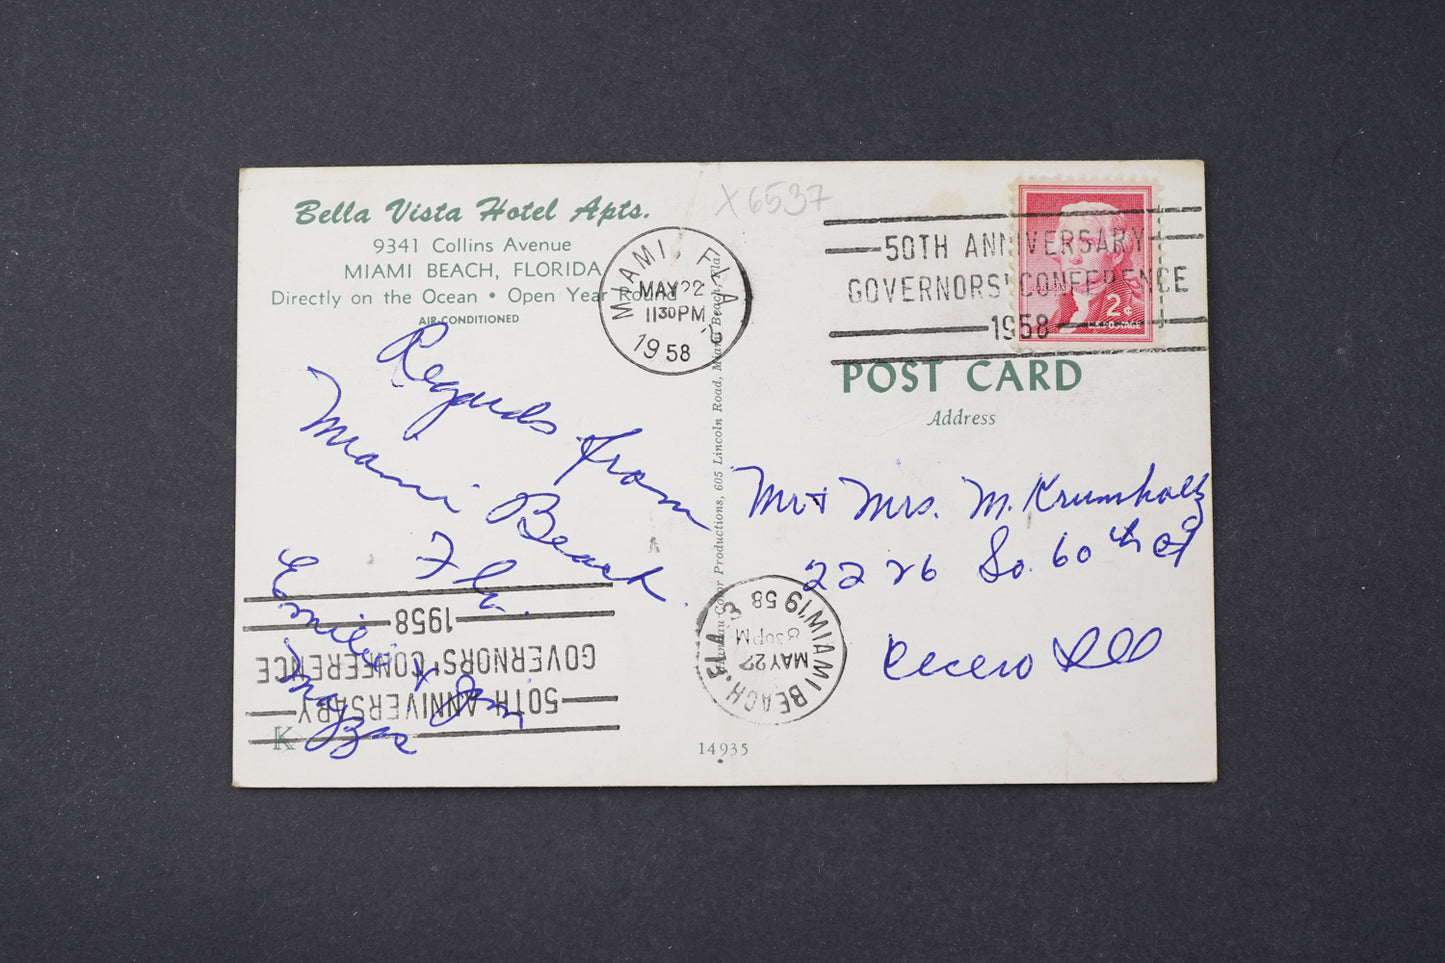 Bella Vista Hotel Apts.
9341 Collins Avenue
MIAMI BEACH, FLORIDA
Directly on the Ocean • Open Year Round
AIR-CONDITIONED
X6537
MIAMI, FLA.
MAY 22
1130PM
1958
50TH ANNIVERSARY
GOVERNORS' CONFERENCE
1958
2¢
U.S. POSTAGE
POST CARD
Address
Regards from
Miami Beach
Fla.
Mr & Mrs. M. Krumholz
2226 So. 60th Ct
Cicero Ill
Color Productions, 605 Lincoln Road, Miami Beach, Fla.
MIAMI BEACH, FLA. 3
MAY 27
830PM
1958
50TH ANNIVERSARY
GOVERNORS' CONFERENCE
1958
K
14935